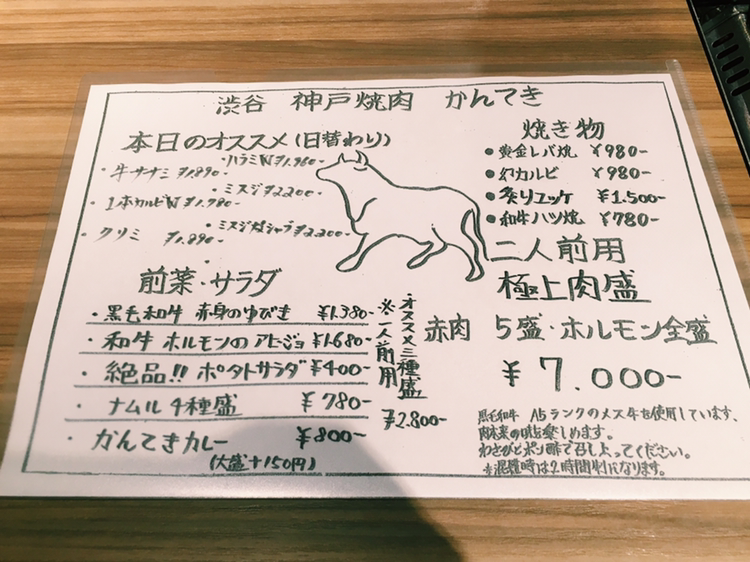 渋谷 神戸焼肉 かんてき
本日のオススメ(日替わり)
・ハラミW ¥1.960-
・牛サガミ ¥1.890-
・ミスジ ¥2200-
・1本カルビW ¥1.780-
・ミスジ焼シャブ ¥2.200-
・クリミ ¥1.890-
焼き物
●黄金レバ焼 ¥980-
●幻カルビ ¥980-
●炙りユッケ ¥1.500-
●和牛ハツ焼 ¥780-
前菜・サラダ
・黒毛和牛 赤身のゆびき ¥1.380-
・和牛 ホルモンのアヒージョ ¥1.680-
・絶品!! ポタトサラダ ¥400-
・ナムル4種盛 ¥780-
・かんてきカレー ¥800-
(大盛+150円)
・オススメ三種盛
※一人前用
¥2.800-
二人前用
極上肉盛
赤肉 5盛・ホルモン全盛
¥7.000-
黒毛和牛 A5ランクのメス牛を使用しています、
肉本来の味を楽しめます。
わさびとポン酢で召し上ってください。
※混雑時は2時間制になります。